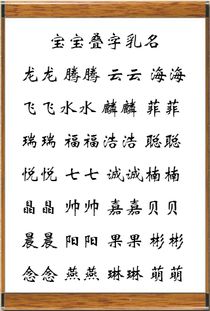 宝宝叠字乳名
龙龙 腾腾 云云 海海
飞飞 水水 麟麟 菲菲
瑞瑞 福福 浩浩 聪聪
悦悦 七七 诚诚 楠楠
晶晶 帅帅 嘉嘉 贝贝
晨晨 阳阳 果果 彬彬
念念 燕燕 琳琳 萌萌